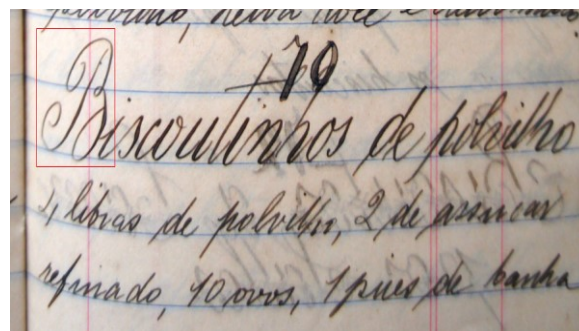 polvilho, deixa
79
Biscoutinhos de polvilho
4 libras de polvilho, 2 de assucar
refinado, 10 ovos, 1 pires de banha